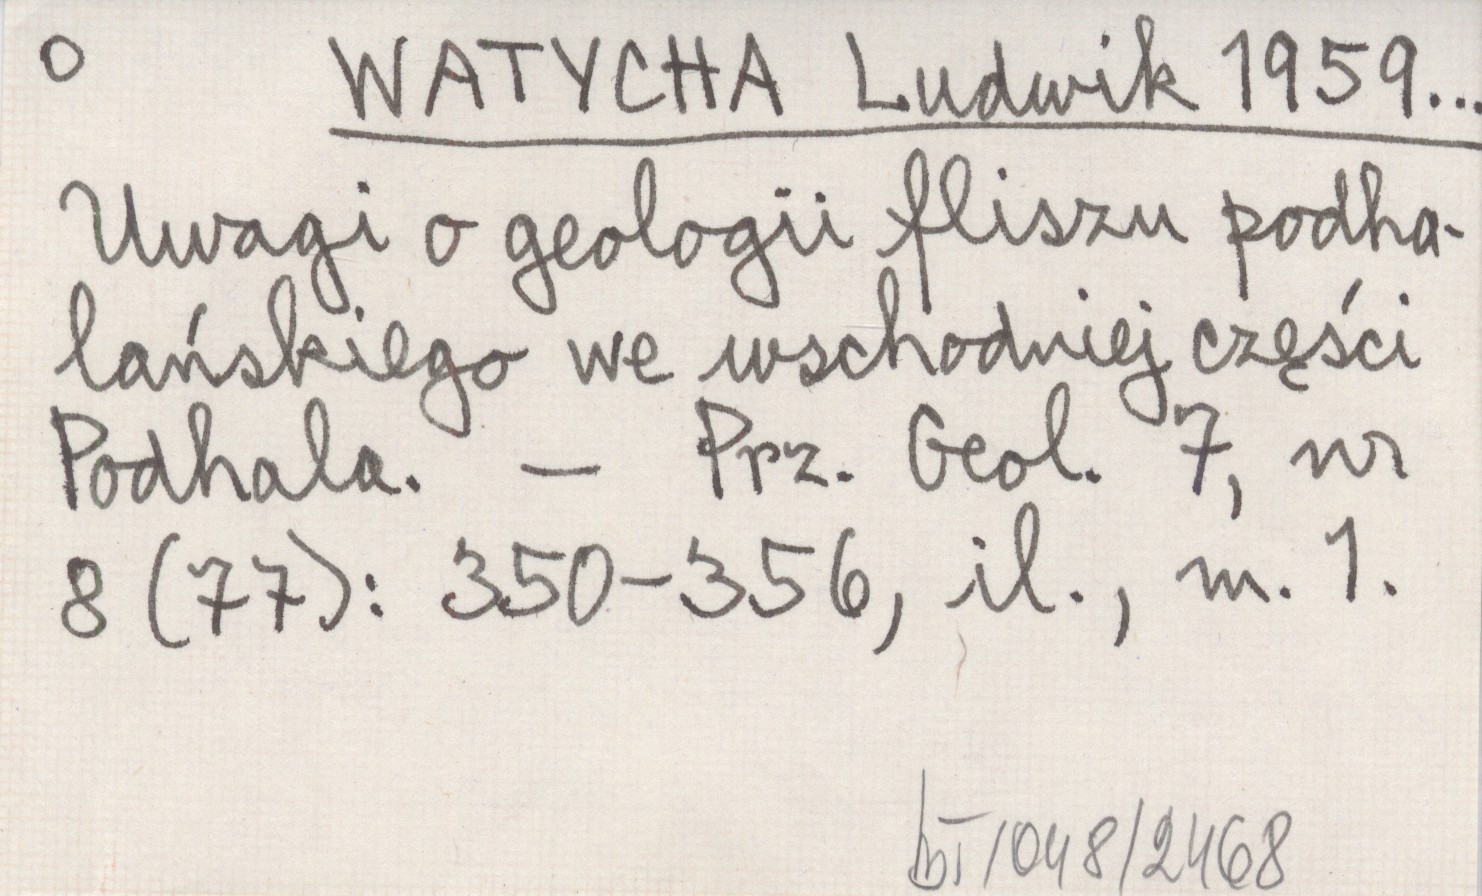 O WATYCHA Ludwik 1959...
Uwagi o geologii fliszu podha-
lańskiego we wschodniej części
Podhala. – Prz. Geol. 7, nr
8 (77): 350-356, il., m. 1.
bT/048/2468